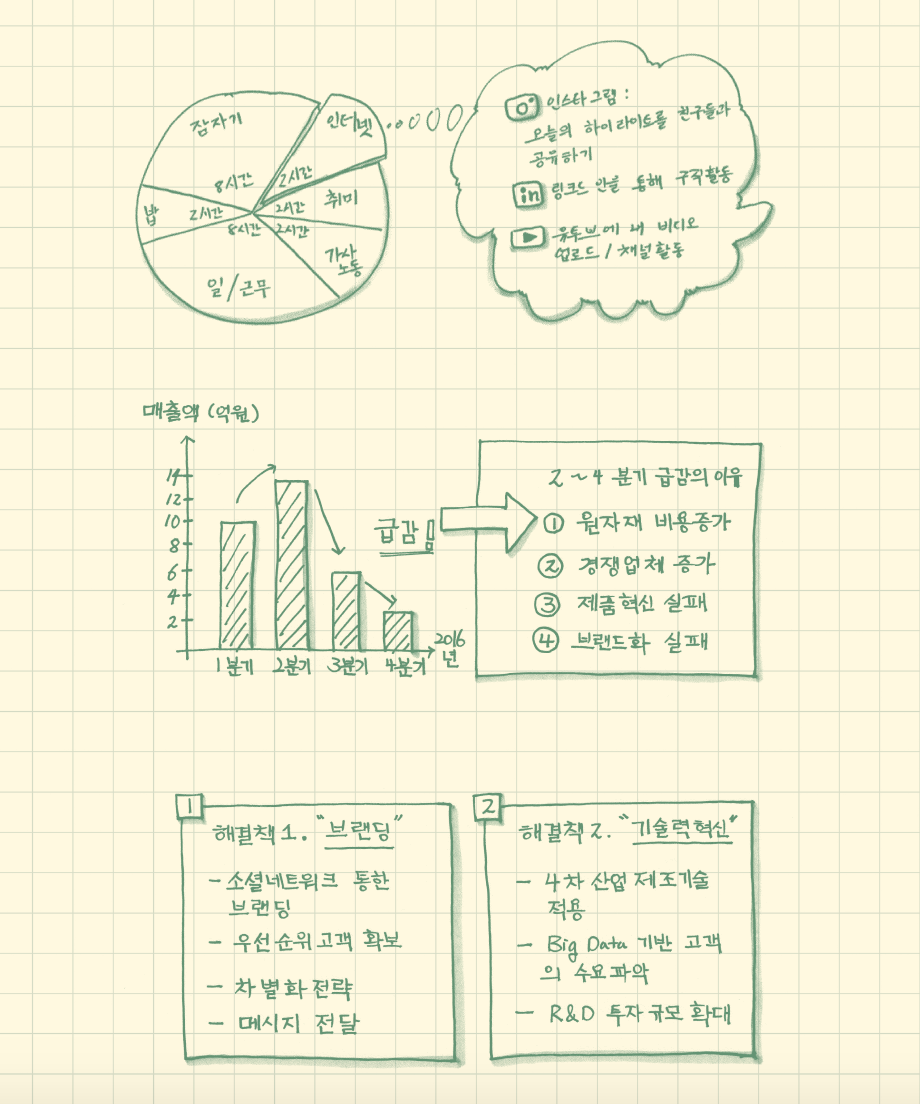 잠자기
8시간
인터넷
2시간
취미
2시간
가사
노동
2시간
일/근무
8시간
밥
2시간
인스타그램 :
오늘의 하이라이트를 친구들과
공유하기
in 링크드 인을 통해 구직활동
유투브에 내 비디오
업로드 / 채널활동
매출액 (억원)
14
12
10
8
6
4
2
1분기
2분기
3분기
4분기
2016
년
급감!
2~4 분기 급감의 이유
① 원자재 비용증가
② 경쟁업체 증가
③ 제품혁신 실패
④ 브랜드화 실패
1
해결책 1. "브랜딩"
- 소셜네트워크 통한
브랜딩
- 우선순위고객 확보
- 차별화전략
- 메시지 전달
2
해결책 2. "기술력혁신"
- 4차 산업 제조기술
적용
- Big Data 기반 고객
의 수요파악
- R&D 투자규모 확대